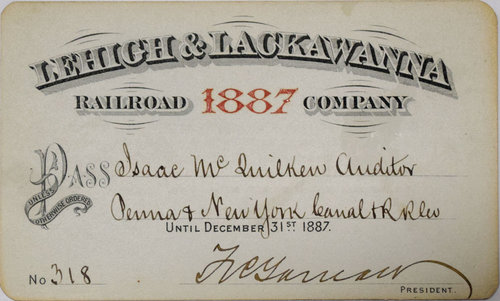 LEHIGH & LACKAWANNA
RAILROAD 1887 COMPANY
PASS Isaac McQuilken Auditor
UNLESS OTHERWISE ORDERED
Penna & New York Canal & R R Co
UNTIL DECEMBER 31ST 1887.
No 318
PRESIDENT.